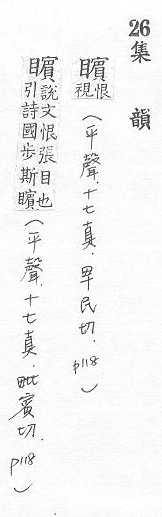 26
集韻
矉恨視(平聲.十七真.卑民切.p118)
矉說文恨張目也引詩國步斯矉(平聲.十七真.毗賓切.p118)